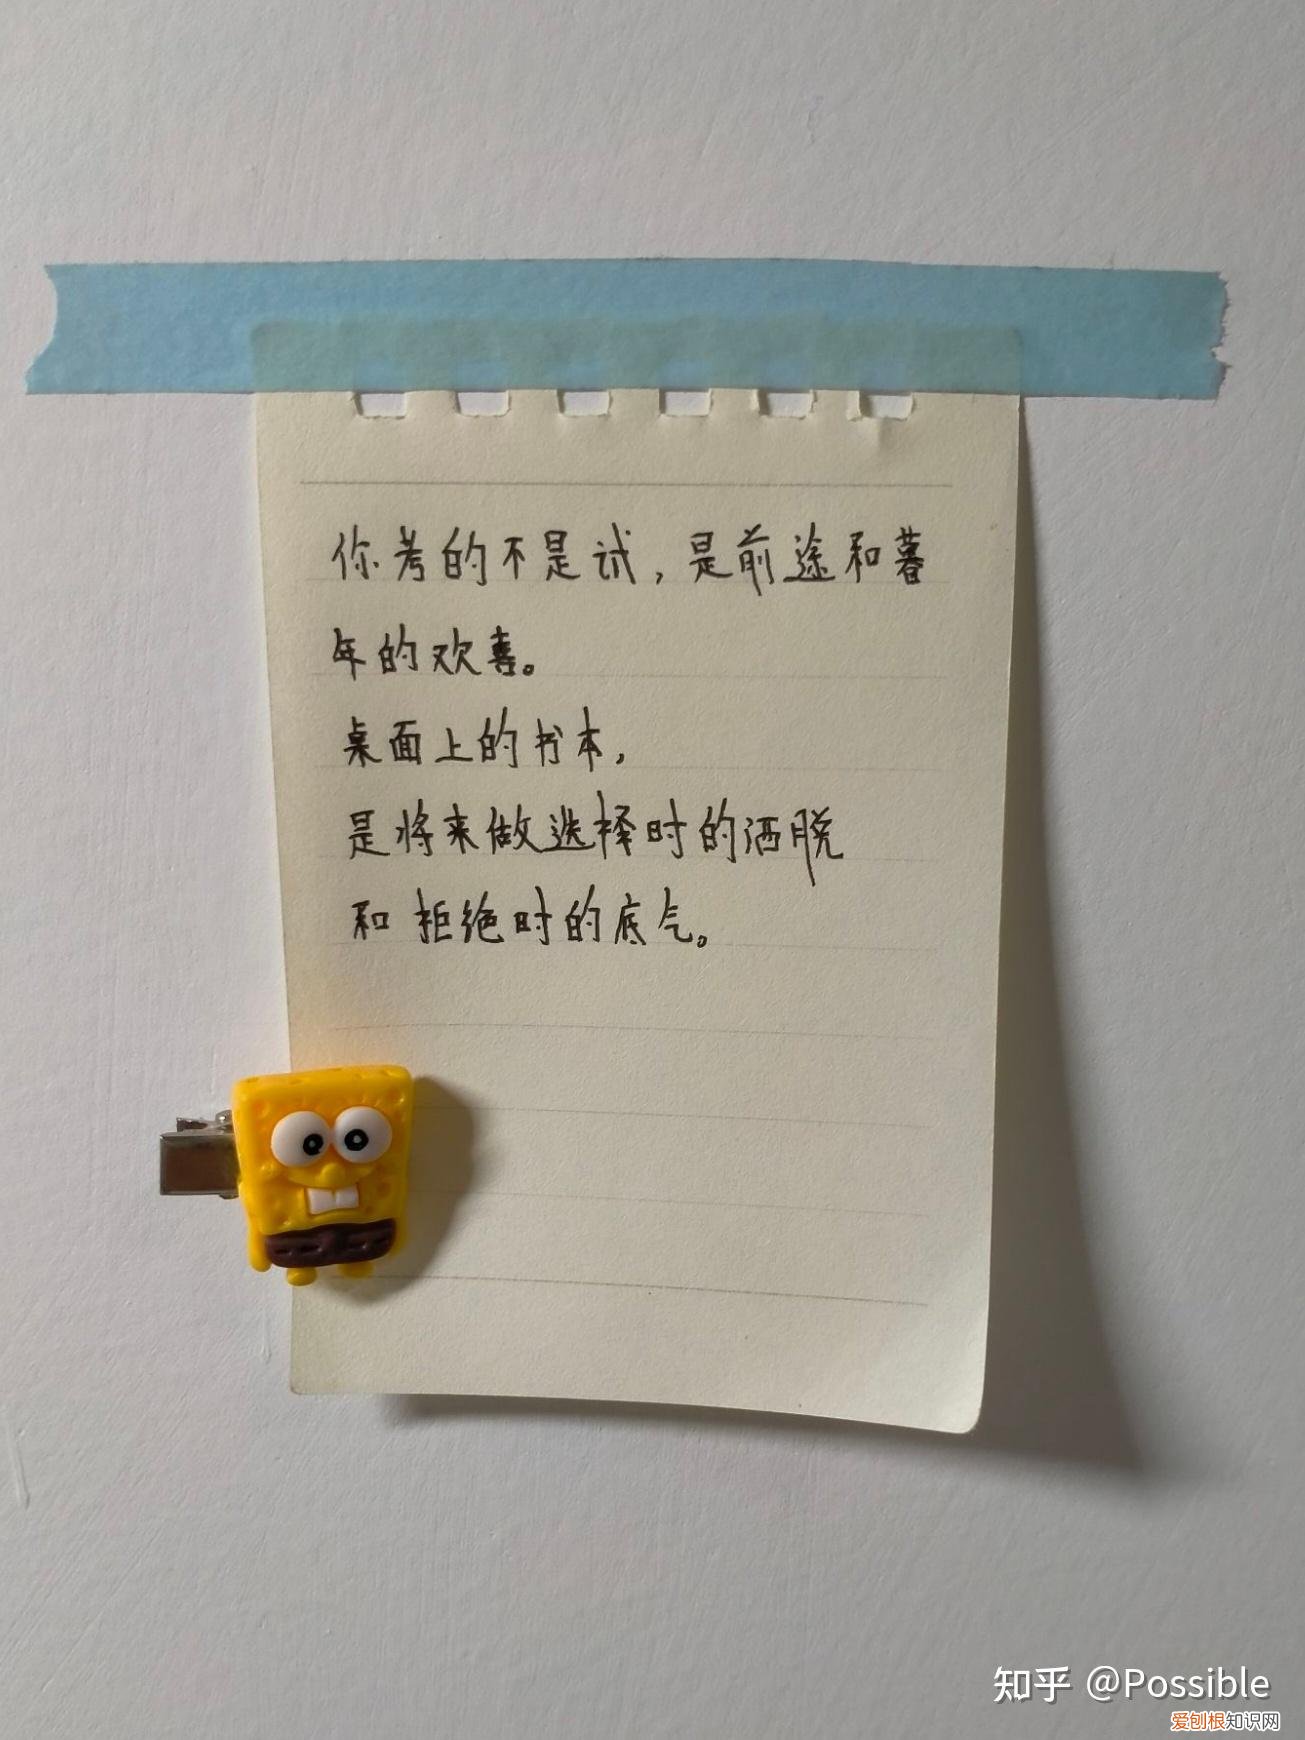 你考的不是试，是前途和暮
年的欢喜。
桌面上的书本，
是将来做选择时的洒脱
和拒绝时的底气。
知乎 @Possible
爱刨根知识网